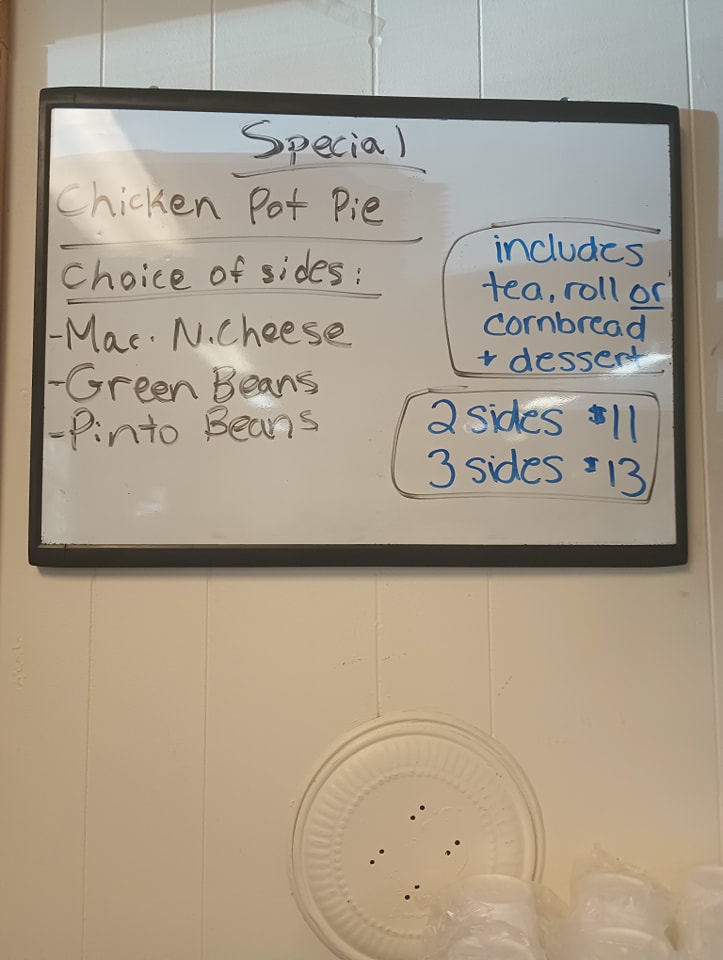 Special
Chicken Pot Pie
Choice of sides:
-Mac. N. Cheese
-Green Beans
-Pinto Beans
includes
tea, roll or
cornbread
+ dessert
2 sides $11
3 sides $13